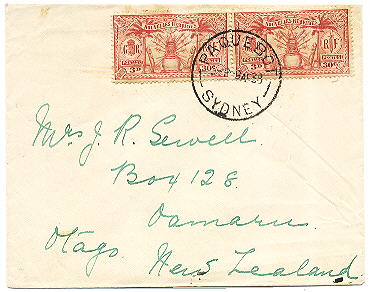 NOUVELLES HÉBRIDES NOUVELLES HÉBRIDES
G R R F
3D 30c 3D 30c
PAQUEBOT
SYDNEY
Mrs J. R. Sewell
Box 128
Oamaru
Otago.
New Zealand.